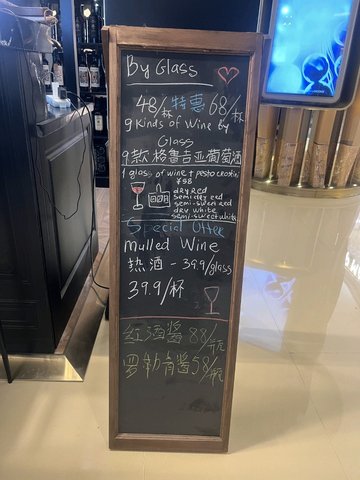 By Glass
48/杯 特惠 68/杯
9 Kinds of Wine by
Glass
9款格鲁吉亚葡萄酒
1 glass of wine + pesto crostini
¥98
dry red
semi dry red
semi-sweet red
dry white
semi-sweet white
Special Offer
Mulled Wine
热酒 - 39.9/glass
39.9/杯
红酒酱 88/瓶
罗勒青酱 58/瓶